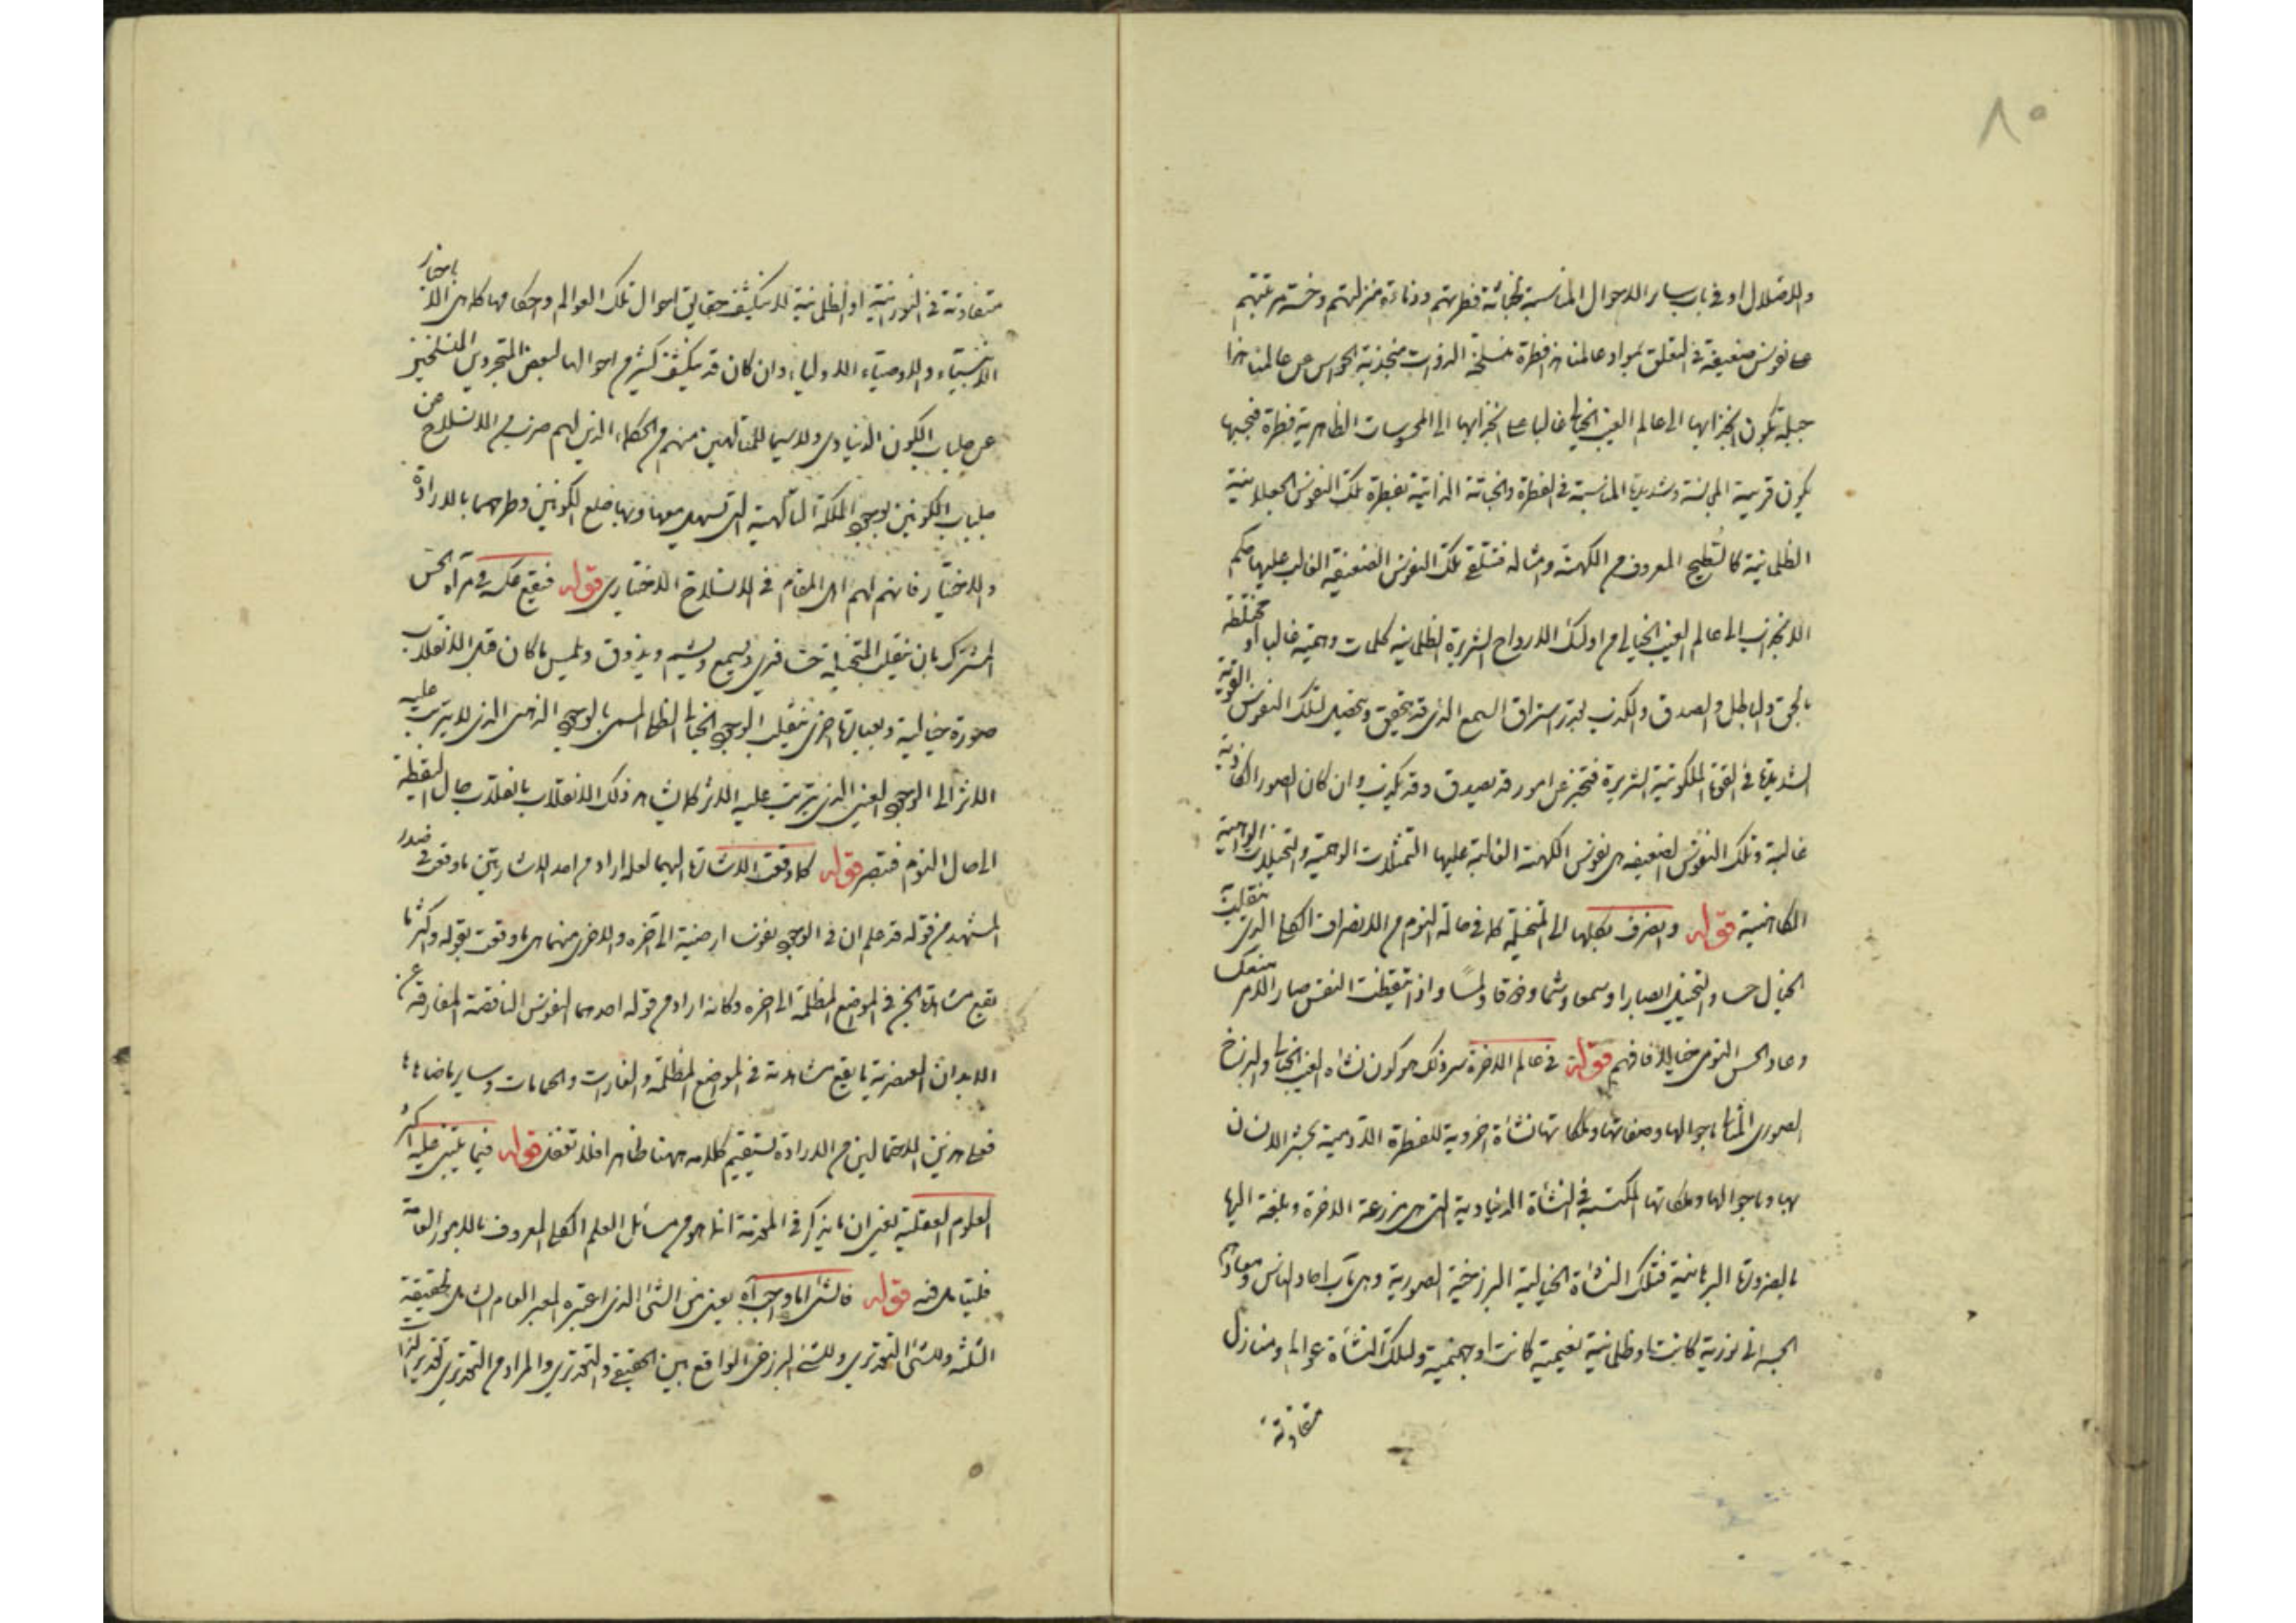 ٨٠
والاضلال او فى باب سائر الاحوال المناسبة لخباثة فطرتهم ودنائة منزلتهم وخسة مرتبتهم
على نفوس ضعيفة فى التعلق بمواد عالمنا هذا فطرة منسلخة الذوات منجذبة الحواس عن عالمنا هذا
جبلة يكون انجذابها الى عالم الغيب الخيالى غالبا على انجذابها الى المحسوسات الظاهرية فطرة فبحبها
يكون قريبة المجانسة وشديدة المناسبة فى الفطرة والخباثة الذاتية بفطرة تلك النفوس
الظلمانية كالسطيح المعروف من الكهنة وامثاله فتتلقى تلك النفوس الضعيفة الغالب عليها حكم
الانجذاب الى عالم الغيب الخيالى من اولئك الارواح الشريرة الظلمانية كلمات وهمية غالبا او مختلطة
بالحق والباطل والصدق والكذب استراق السمع الذى قد يتحقق ويحصل لتلك النفوس القوية
الشديدة فى القوة الملكوتية الشريرة فتخبر عن امور قد يصدق وقد يكذب وان كان الصور الكاذبة
غالبة وتلك النفوس الضعيفة هى نفوس الكهنة الغالبة عليها التمثلات الوهمية والتخيلات الواهية
الكاهنية قوله وانصرف بكلها الى المتخيلة كما فى حالة النوم من الانصراف الكلى الذى ينقلب
الخيال حسا والتخيل ابصارا وسمعا وشما وذوقا ولمسا واذا تيقظت النفس صار الامر منعكسا
وعاد الحس النومى خيالا فافهم قوله فى عالم الاخرة سر ذلك هو كون نشأة الغيب الخيالى والبرزخ
الصورى المثالى باحوالها وصفاتها وملكاتها نشأة اخروية للفطرة الآدمية يحشر الانسان
بها وباحوالها وملكاتها المكتسبة فى النشأة الدنياوية التى هى مزرعة الاخرة وبلغة اليها
بالضرورة البرهانية فتلك النشأة الخيالية البرزخية الصورية وهى مآب احاد الناس ومعادهم
الجسمانى نورية كانت او ظلمانية نعيمية كانت او جهنمية ولتلك النشأة عوالم ومنازل
متفاوتة
متفاوتة فى النورانية او الظلمانية لا ينكشف حقايق احوال تلك العوالم واحكامها كما هى الا باخبار
الانبياء والاوصياء الاولياء وان كان قد ينكشف كثير من احوالها لبعض المتجردين المنسلخين
عن جلباب الكون الدنياوى ولا سيما للمتألهين منهم من الحكماء الذين لهم ضرب من الانسلاخ عن
جلباب الكونين بوجود الملكة التألهية التى تسهل معها وبها خلع الكونين وطرحهما بالارادة
والاختيار فانهم لهم المقام فى الانسلاخ الاختيارى قوله فيقع عكسه فى مرآة الحس
المشترك بان ينقلب المتخيلة حسا فيرى ويسمع ويشم ويذوق ويلمس ما كان قبل الانقلاب
صورة خيالية وبعبارة اخرى ينقلب الوجود الخيالى الظلى المسمى بالوجود الذهنى الذى لا يترتب عليه
الاثر الى الوجود العينى الذى يترتب عليه الاثر كما يشاهد ذلك الانقلاب بانقلاب حال اليقظة
الى حال النوم فتبصر قوله كما وقعت الاشارة اليهما لعله اراد من احد الاشارتين ما وقع فى صدر
المشهد من قوله قد علم ان فى الوجود نفوسا ارضية الى آخره والاخرى منهما هى ما وقعت بقوله واكثر ما
يقع مشاهدة الجن فى المواضع المظلمة الى اخره وكانه اراد من قوله احدهما النفوس الناقصة المفارقة عن
الابدان العنصرية ما يقع مشاهدته فى المواضع المظلمة والغارات والحمامات وسائر ما ضاهاها
فعلى هذين الاحتمالين من الارادة يستقيم كلامه ههنا ظاهرا فلا تغفل قوله فيما يبتنى عليه اكثر
العلوم العقلية يعنى ان ما يذكر فى المقدمة انما هو من مسائل العلم الكلى المعروف بالامور العامة
فليتأمل فيه قوله فالشىء اما وجب آه يعنى من الشىء الذى اعتبره المعبر العام الشامل للحقيقة
الثلثة وللشىء التقديرى وللشىء البرزخى الواقع بين الحقيقى والتقديرى والمراد من التقديرى